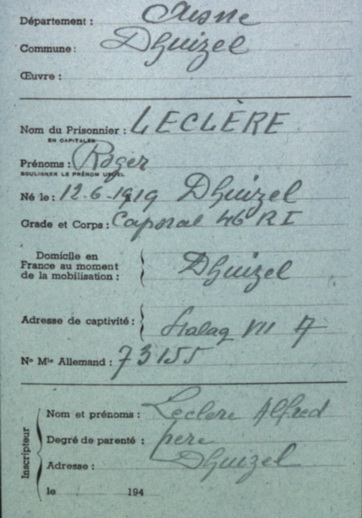 Département : Aisne
Commune : Dhuizel
Œuvre :
Nom du Prisonnier : LECLÈRE
EN CAPITALES
Prénoms : Roger
SOULIGNER LE PRÉNOM USUEL
Né le : 12-6-1919 Dhuizel
Grade et Corps : Caporal 46 RI
Domicile en
France au moment
de la mobilisation : Dhuizel
Adresse de captivité : Stalag VII A
Nº Mle Allemand : 73155
Inscripteur
Nom et prénoms : Leclere Alfred
Degré de parenté : père
Adresse : Dhuizel
le 194